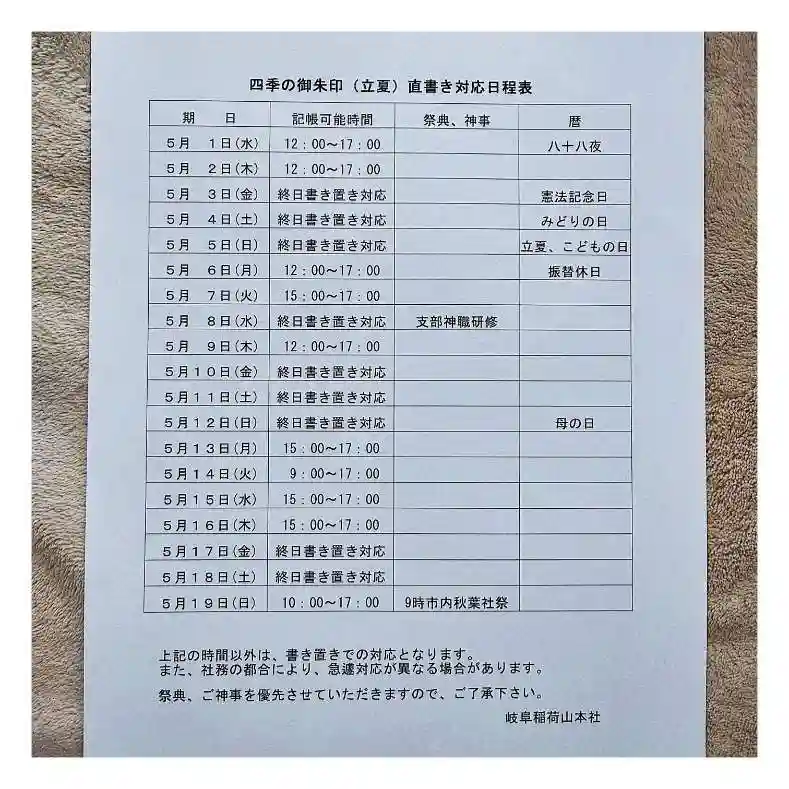 四季の御朱印（立夏）直書き対応日程表
期　日　記帳可能時間　祭典、神事　暦
５月　１日(水)　12：00～17：00　八十八夜
５月　２日(木)　12：00～17：00
５月　３日(金)　終日書き置き対応　憲法記念日
５月　４日(土)　終日書き置き対応　みどりの日
５月　５日(日)　終日書き置き対応　立夏、こどもの日
５月　６日(月)　12：00～17：00　振替休日
５月　７日(火)　15：00～17：00
５月　８日(水)　終日書き置き対応　支部神職研修
５月　９日(木)　12：00～17：00
５月１０日(金)　終日書き置き対応
５月１１日(土)　終日書き置き対応
５月１２日(日)　終日書き置き対応　母の日
５月１３日(月)　15：00～17：00
５月１４日(火)　9：00～17：00
５月１５日(水)　15：00～17：00
５月１６日(木)　15：00～17：00
５月１７日(金)　終日書き置き対応
５月１８日(土)　終日書き置き対応
５月１９日(日)　10：00～17：00　9時市内秋葉社祭
上記の時間以外は、書き置きでの対応となります。
また、社務の都合により、急遽対応が異なる場合があります。
祭典、ご神事を優先させていただきますので、ご了承下さい。
岐阜稲荷山本社